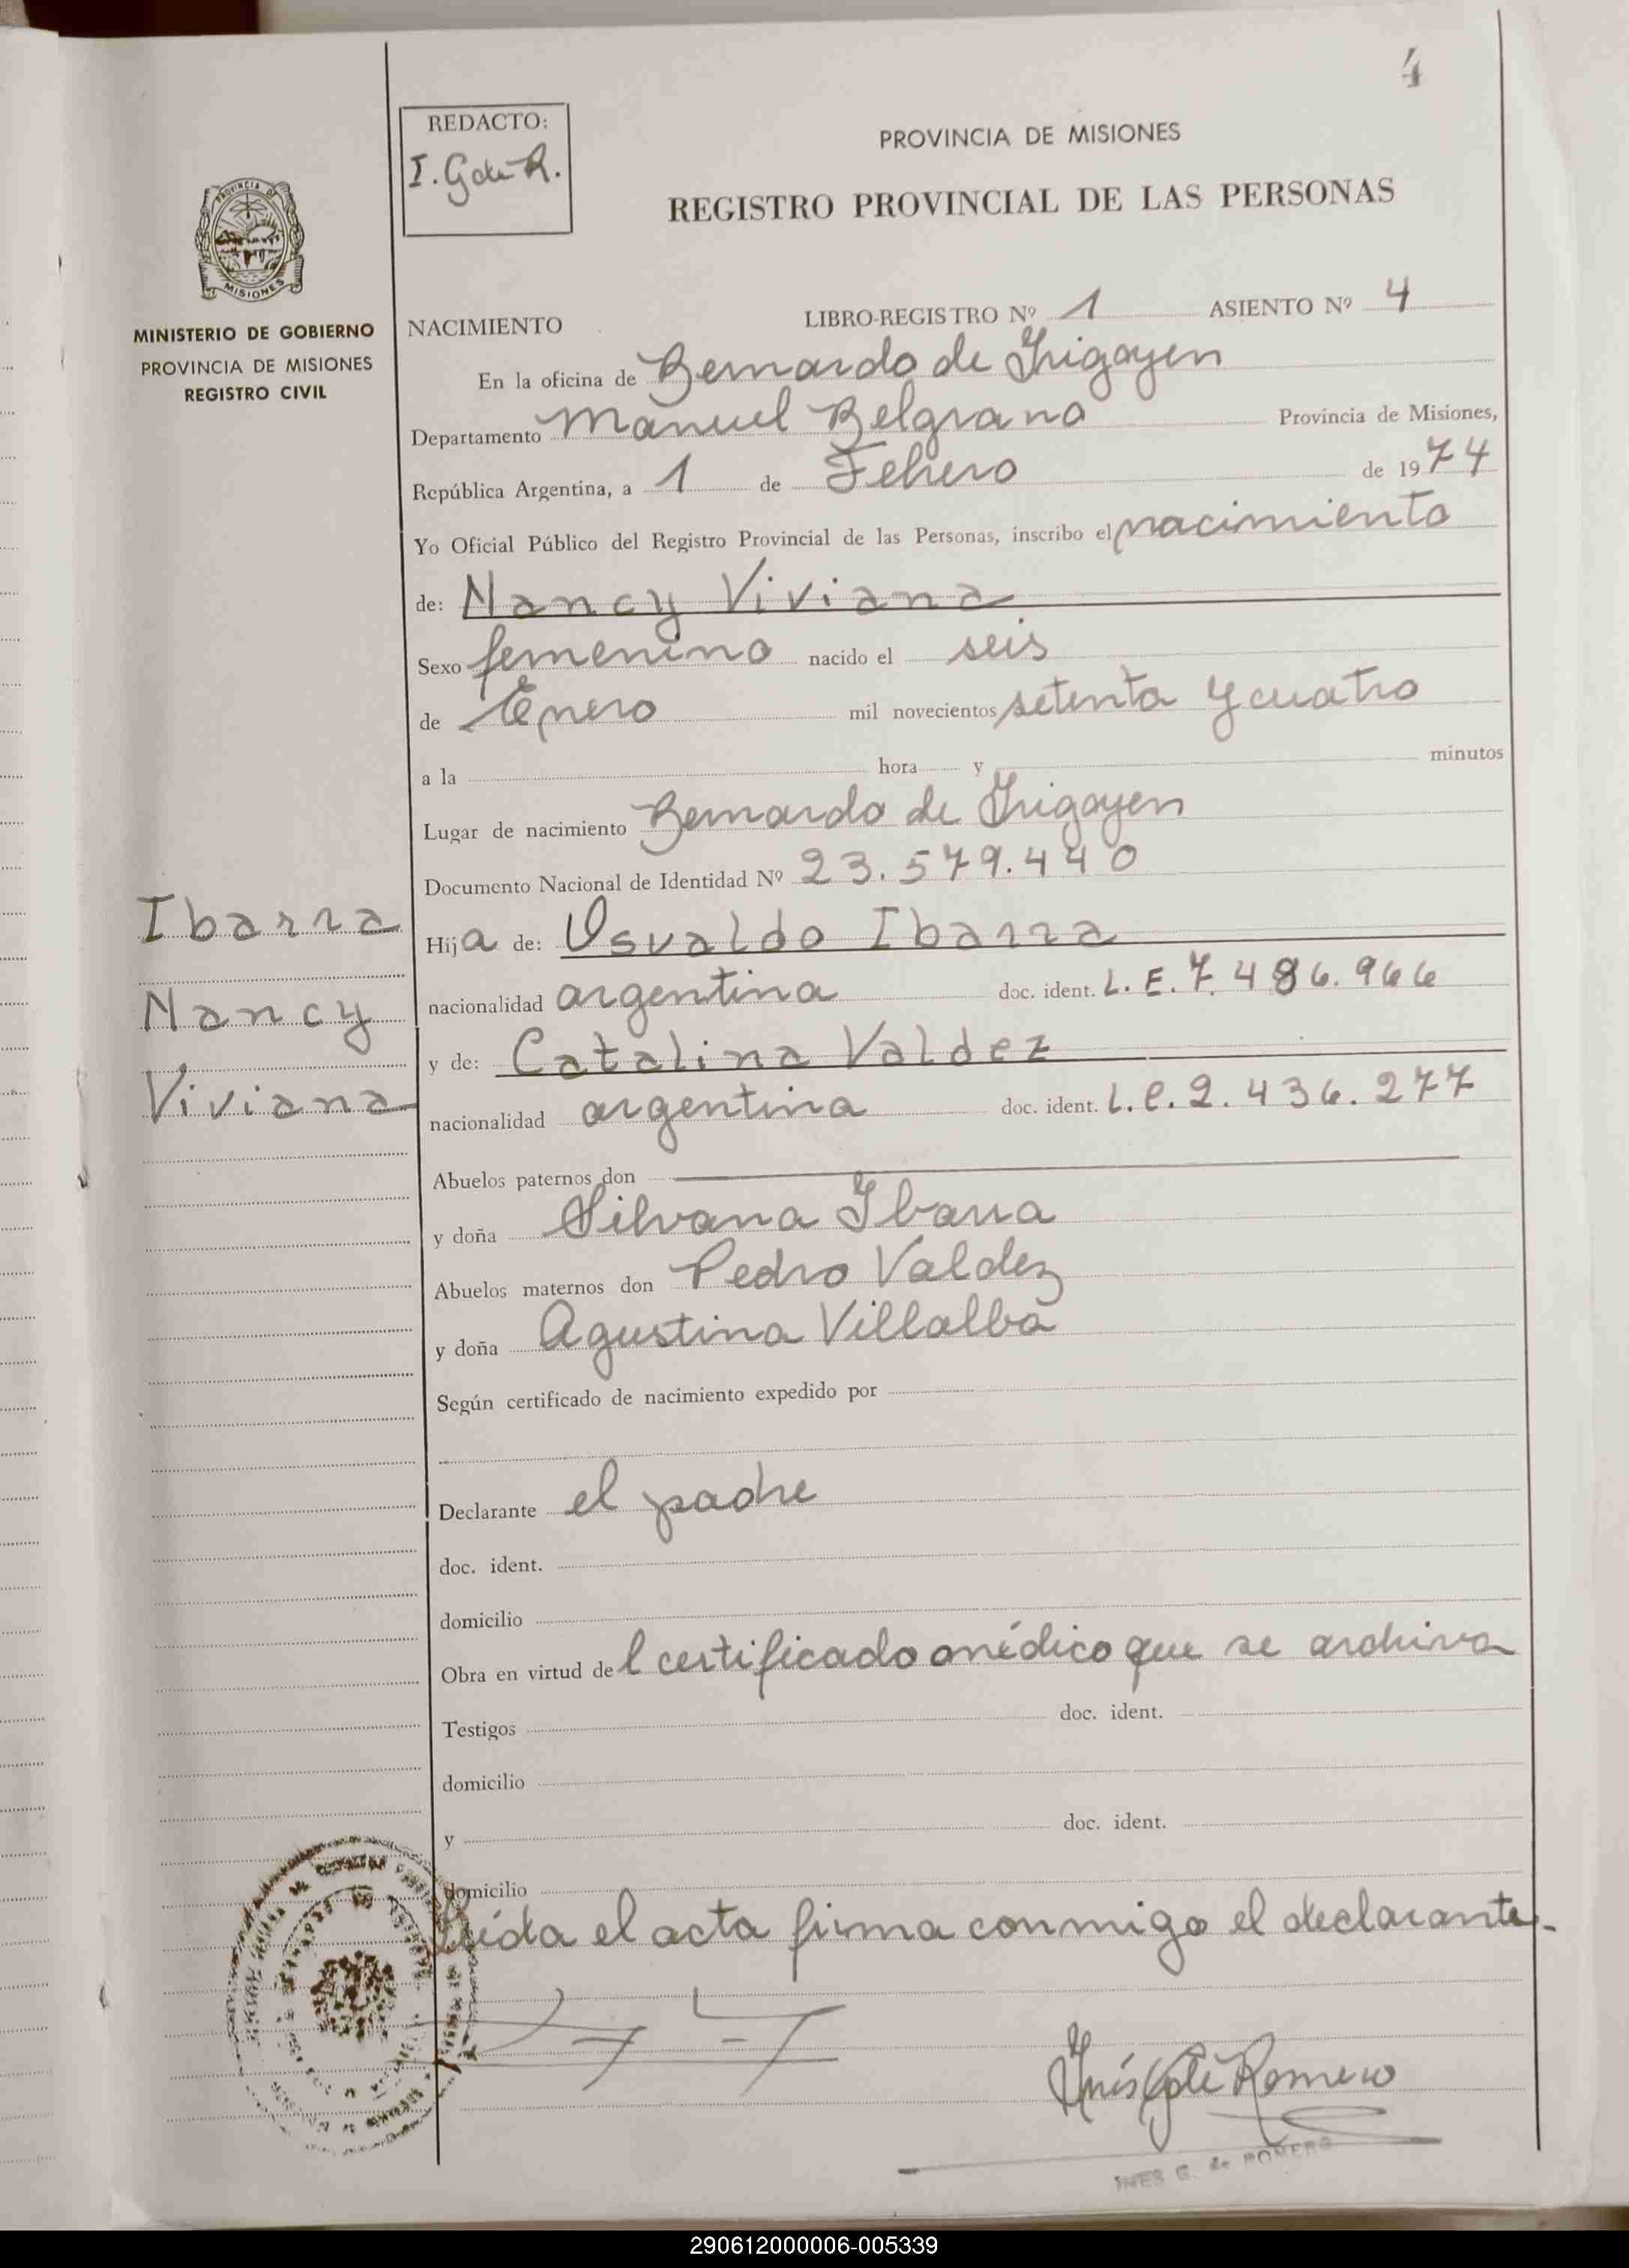 4
REDACTO:
I. G de R.
PROVINCIA DE MISIONES
REGISTRO PROVINCIAL DE LAS PERSONAS
MISIONES
MINISTERIO DE GOBIERNO
PROVINCIA DE MISIONES
REGISTRO CIVIL
NACIMIENTO LIBRO-REGISTRO Nº 1 ASIENTO Nº 4
En la oficina de Bernardo de Irigoyen
Departamento Manuel Belgrano Provincia de Misiones,
República Argentina, a 1 de Febrero de 1974
Yo Oficial Público del Registro Provincial de las Personas, inscribo el nacimiento
de: Nancy Viviana
Sexo femenino nacido el seis
de Enero mil novecientos setenta y cuatro
a la hora y minutos
Lugar de nacimiento Bernardo de Irigoyen
Documento Nacional de Identidad Nº 23.579.440
Ibarra
Nancy
Viviana
Hija de: Osvaldo Ibarra
nacionalidad argentina doc. ident. L.E. 7.486.966
y de: Catalina Valdez
nacionalidad argentina doc. ident. L.C. 2.436.277
Abuelos paternos don
y doña Silvana Ibarra
Abuelos maternos don Pedro Valdez
y doña Agustina Villalba
Según certificado de nacimiento expedido por
Declarante el padre
doc. ident.
domicilio
Obra en virtud del certificado médico que se archiva
Testigos doc. ident.
domicilio
y doc. ident.
domicilio
Leída el acta firma conmigo el declarante.-
Inés G de Romero
INES G. de ROMERO
290612000006-005339